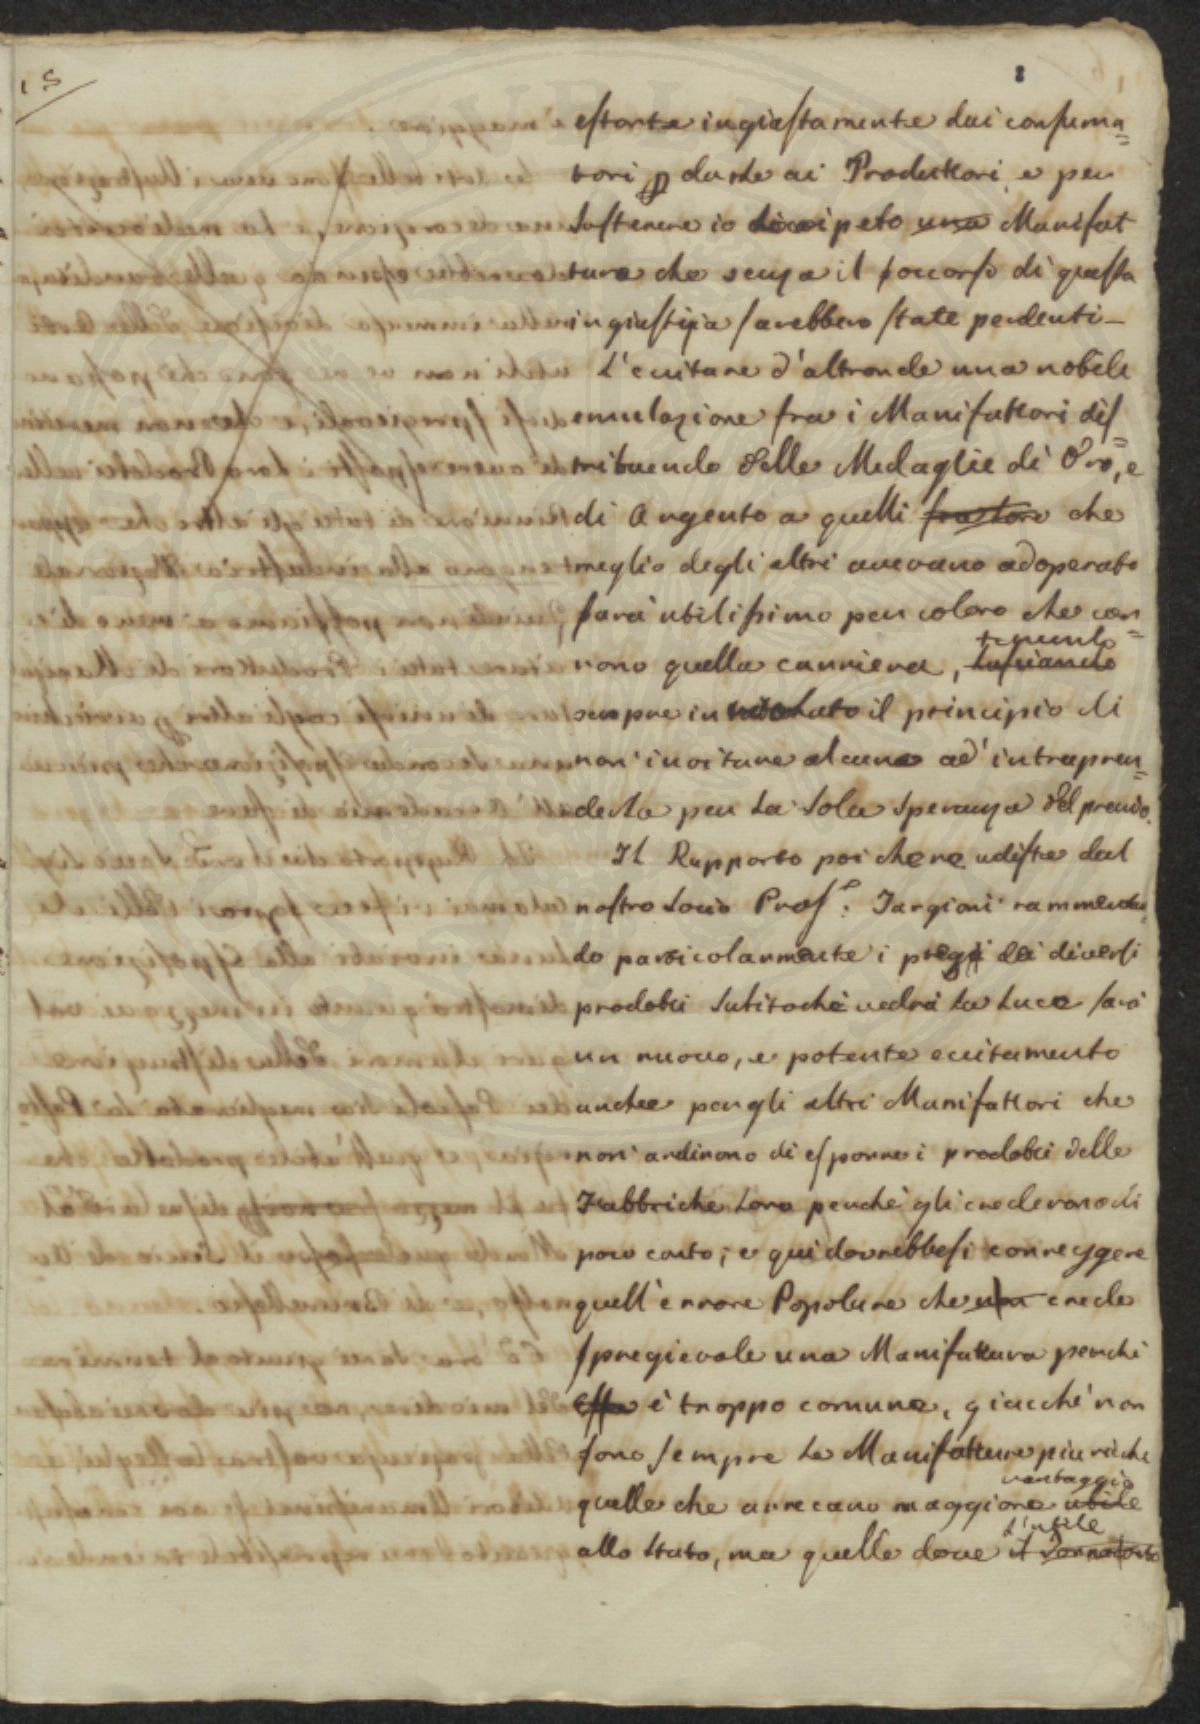 15
8
estorte ingiustamente dai consuma=
tori p darle ai Produttori, e per
sostenere io ripeto una Manifat
tura che senza il soccorso di questa
ingiustizia sarebbero state perdenti_
L'ecitare d'altronde una nobile
emulazione fra i Manifattori dis=
tribuendo delle Medaglie di Oro, e
di Argento a quelli fra loro che
meglio degli altri avevano adoperato
sarà utilissimo per coloro che cor=
tenendo
rono quella carriera, lasciando
sempre inviolato il principio di
non' incitare alcuno ad' intrapren=
derla per la sola speranza del premio.
Il Rapporto poi che ne udiste dal
nostro Socio Prof.r Targioni rammentan=
do particolarmente i pregi dei diversi
prodotti subitochè vedrà la luce sarà
un nuovo, e potente ecitamento
anche per gli altri Manifattori che
non' ardirono di esporre i prodotti delle
Fabbriche loro perchè gli credevano di
poco conto; e qui dovrebbesi correggere
quell'errore Popolare che crede
spregievole una Manifattura perchè
essa è troppo comune, giacchè non
sono sempre le Manifatture più ricche
vantaggio
quelle che arrecano maggiore utile
l'utile
allo Stato, ma quelle dove il